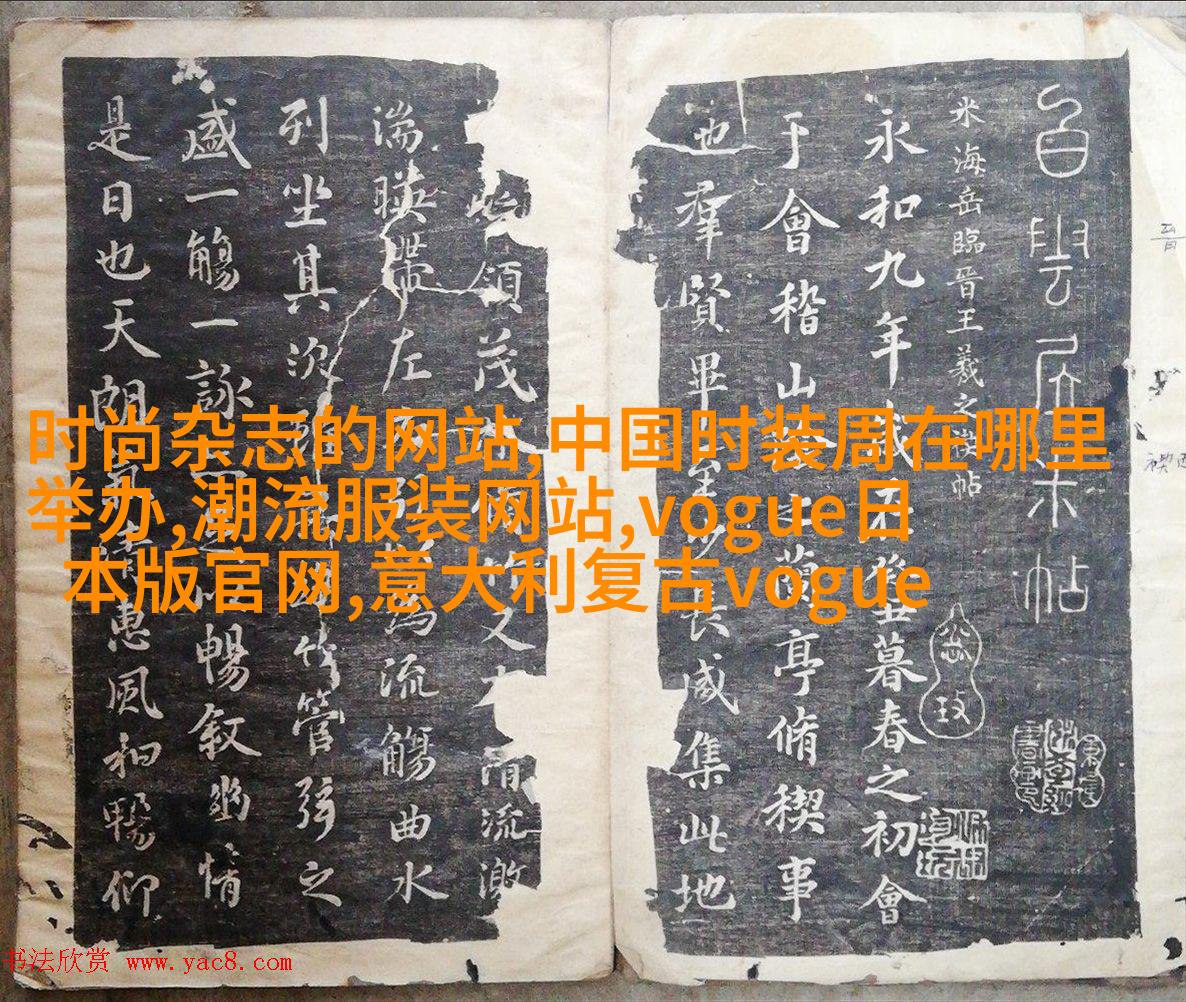 白雲居米帖
米海岳臨晉王羲之禊帖
永和九年歲在癸丑暮春之初會
于會稽山陰之蘭亭脩稧事
也羣賢畢至少長咸集此地
領茂林脩竹又有清流激
湍暎帶左右引以為流觴曲水
列坐其次雖無絲竹管弦之
盛一觴一詠亦足以暢敘幽情
是日也天朗氣清惠風和暢仰
时尚杂志的网站,中国时装周在哪里
举办,潮流服装网站,vogue日
本版官网,意大利复古vogue
书法欣赏 www.yac8.com